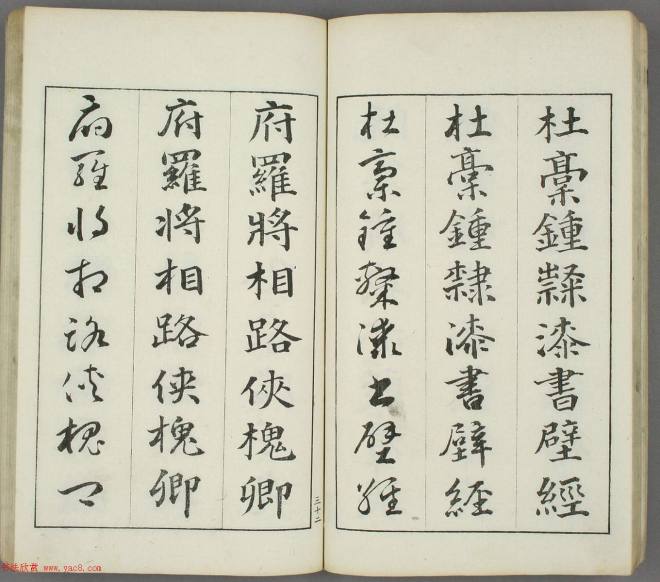 杜稾鍾隸漆書壁經
杜稾鍾隸漆書壁經
杜稾鍾隸漆書壁經
府羅將相路俠槐卿
府羅将相路侠槐卿
府羅将相路侠槐卿
三十二
书法欣赏 www.yac8.com